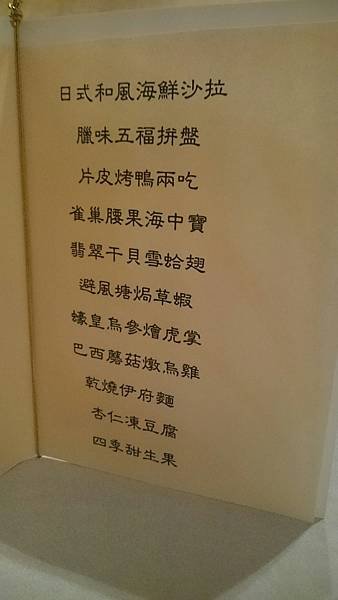 日式和風海鮮沙拉
臘味五福拼盤
片皮烤鴨兩吃
雀巢腰果海中寶
翡翠干貝雪蛤翅
避風塘焗草蝦
蠔皇烏參燴虎掌
巴西蘑菇燉烏雞
乾燒伊府麵
杏仁凍豆腐
四季甜生果